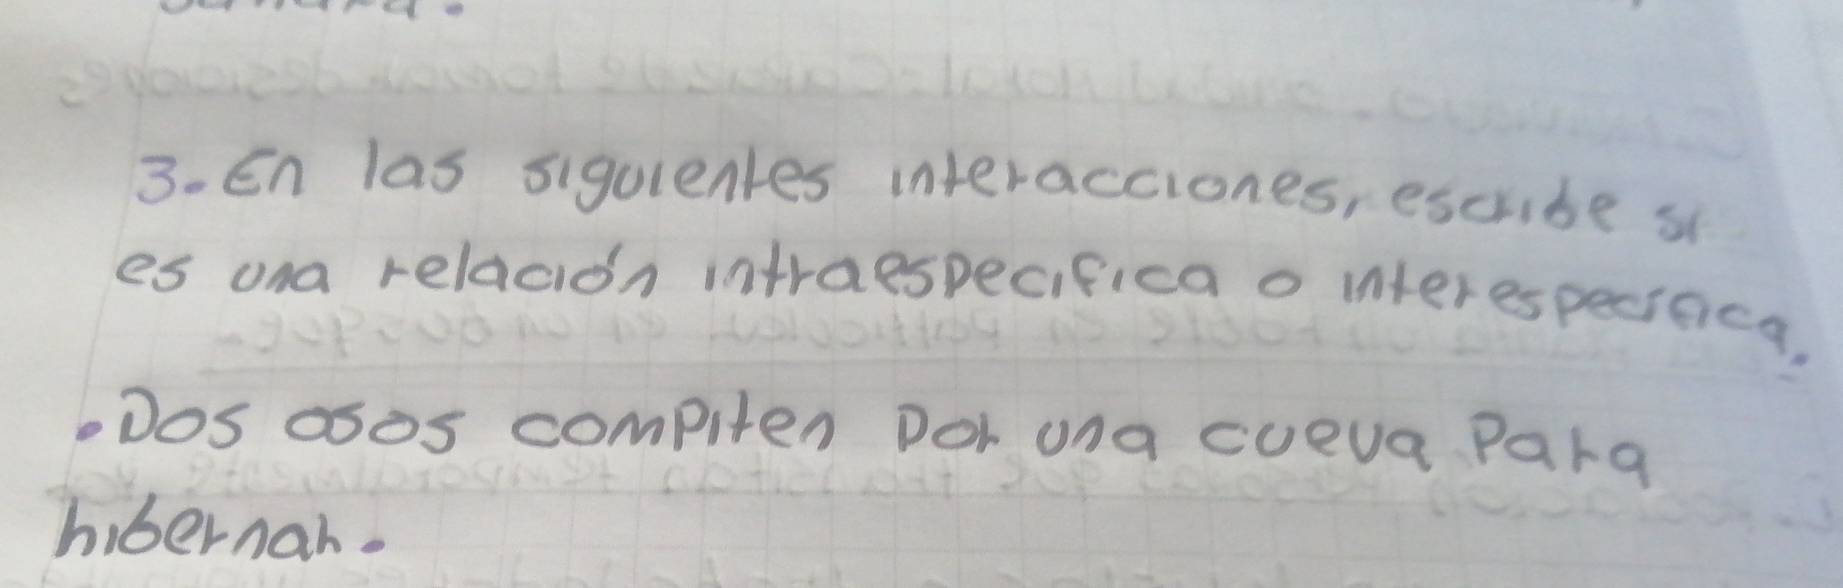 3. En las siguientes interacciones, escribe si
es una relación intraespecifica o interespecifica.
• Dos osos compiten por una cueva para
hibernar.